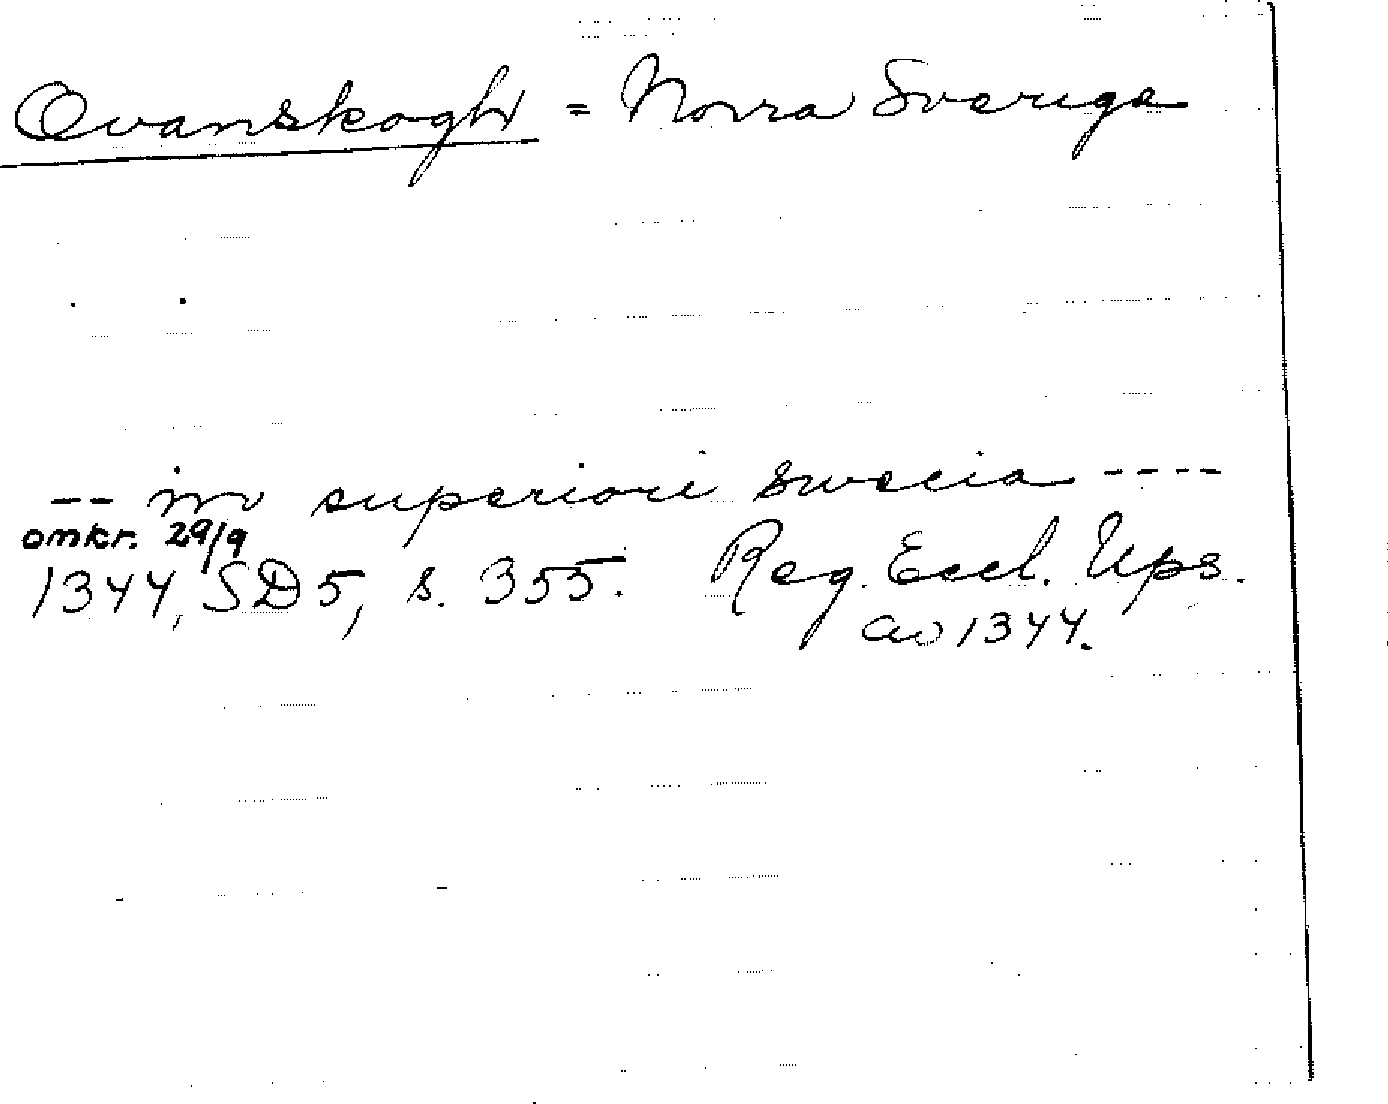 Ovanskogh = Norra Sverige
-- in superiori swecia ----
omkr. 29/9
1344, SD 5, s. 355. Reg. Eccl. Ups.
av 1344.